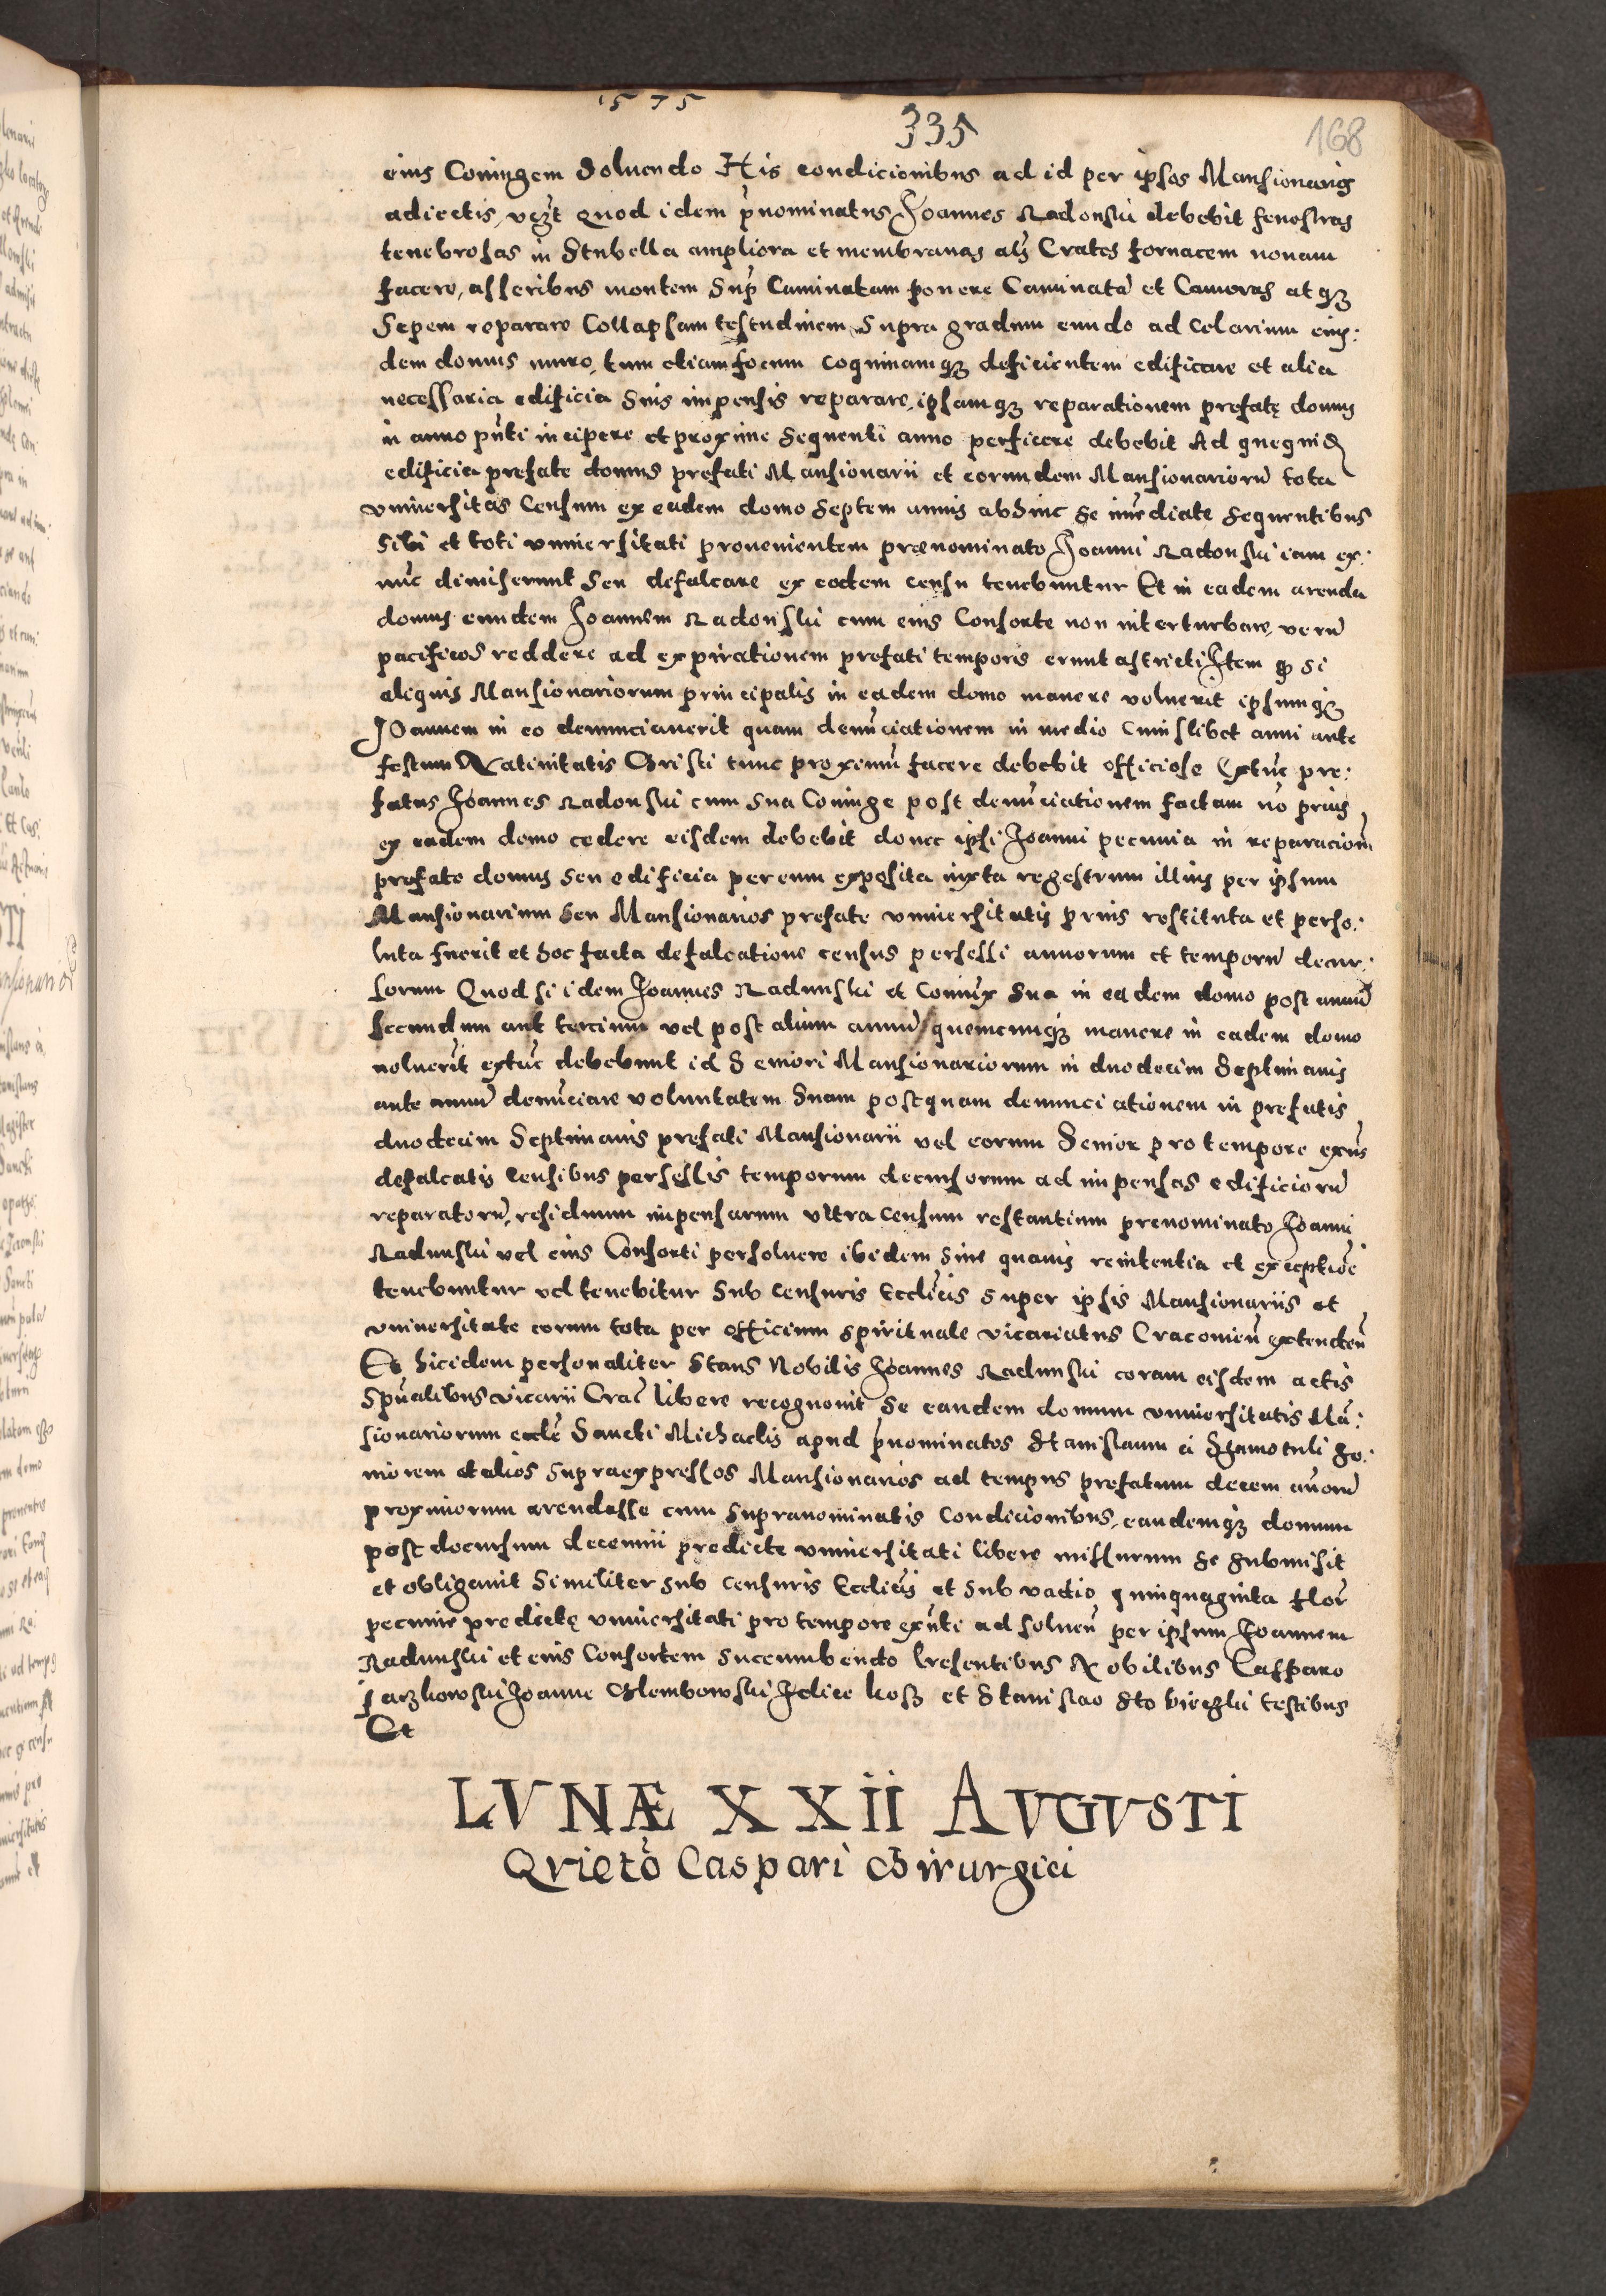 1575
335
168
eius Coniugem Soluendo His condicionibus ad id per ipsos Mansionarios
adiectis, vczt Quod idem pnominatus Joannes Radonski debebit fenestras
tenebrosas in Stubella ampliora et membranas als Crates fornacem nouam
facere, asseribus montem Sup Caminatam ponere Caminatā et Cameras atqz
Sepem reparare Collapsam testudinem Supra gradum eundo ad Celarium eius:
dem domus muro, tum etiam focum coquinamqz deficientem edificare et alia
necessaria edificia Suis impensis reparare, ipsamqz reparationem prefatę domus
in anno pnti incipere et proxime Sequenti anno perficere debebit Ad queqiud
edificia prefate domus prefati Mansionarii et eorundem Mansionariorū tota
vniuersitas Censum ex eadem domo Septem annis abhinc se immediate sequentibus
Sibi et toti vniuersitati prouenientem prænominato Joanni Radonski iam ex:
nūc dimiserunt Seu defalcare ex eodem censu tenebuntur Et in eadem arenda
domus eundem Joannem Radonski cum eius Consorte non interturbare, verū
pacificos reddere ad expirationem prefati temporis erunt astricti Item qp si
aliquis Mansionariorum principalis in eadem domo manere voluerit ipsumqz
Joannem in eo denunciauerit quam denūciationem in medio Cuiuslibet anni ante
festum Natiuitatis Christi tunc proximū facere debebit officiose Extūc pre:
fatus Joannes Radonski cum Sua Coniuge post denūciationem factam nō prius
ex eadem domo cedere eisdem debebit donec ipsi Joanni pecunia in reparacionē
prefate domus Seu edificia per eum exposita iuxta regestrum illius per ipsum
Mansionarium Seu Mansionarios prefate vniuersitatis prius restituta et perso:
luta fuerit et hoc facta defalcatione census persessi annorum et temporū decur:
sorum Quod si idem Joannes Radunski et Coniux Sua in eadem domo post annū
secundum aut tercium vel post alium annū quemcunqz manere in eadem domo
noluerīt extūc debebunt id Seniori Mansionariorum in duodecim Septimanis
ante annū denūciare voluntatem Suam post quam denunciationem in prefatis
duodecim Septimanis prefati Mansionarii vel eorum Senior pro tempore exn̄s
defalcatis Censibus persessis temporum decursorum ad impensas edificiorū
reparatorū, residuum impensarum vltra Censum restantium prenominato Joanni
Radunski vel eius Consorti persoluere ibidem Sine quauis renitentia et exceptiōe
tenebuntur vel tenebitur Sub Censuris Ecclīcis super ipsis Mansionariis et
vniuersitate eorum tota per officium spirituale vicariatus Cracouien̄ extenden̄
Et hic idem personaliter Stans Nobilis Joannes Radunski coram eisdem actis
Spūalibus vicarii Crac̄ libere recognouit Se eandem domum vniuersitatis Mā:
sionariorum eccl̄e Sancti Michaelis apud pnominatos Stanislaum a Schamotuli Se:
niorem et alios Supraexpressos Mansionarios ad tempus prefatum decem an̄orū
proximorum arendasse cum Supranominatis Condicionibus, eandemqz domum
post decursum decennii predicte vniuersitati libere missurum se submisit
et obligauit Similiter sub Censuris Ecclīcis et sub vadio quinquaginta flor̄
pecunie predictę vniuersitati pro tempore exn̄ti ad soluen̄ per ipsum Joannem
Radunski et eius Consortem succumbendo Presentibus Nobilibus Casparo
Jarzkowski Joanne Glembowski Felice kosz et Stanislao testibus
Et
LVNÆ XXII AVGVSTI
Qvietō Caspari chirurgici